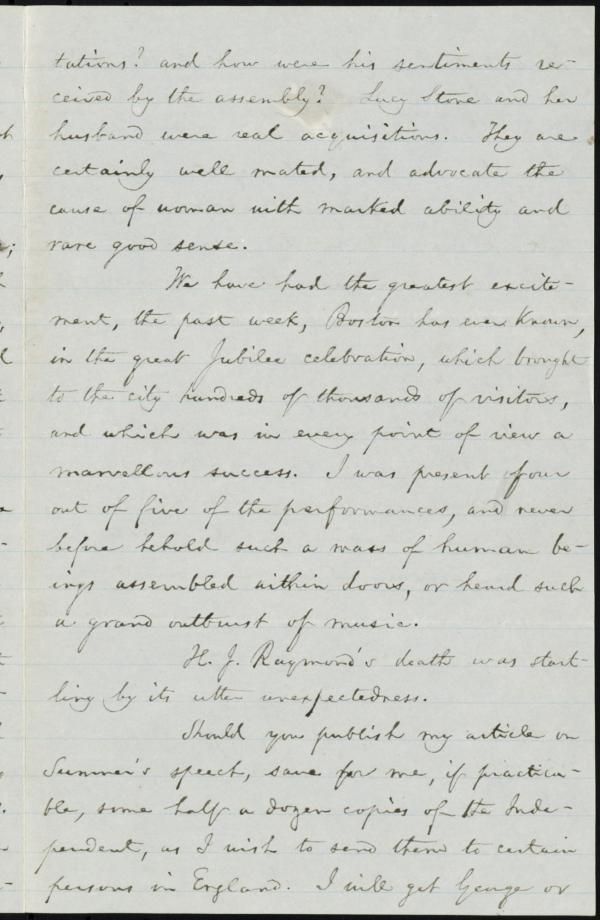 tations? and how were his sentiments re-
ceived by the assembly? Lucy Stone and her
husband were real acquisitions. They are
certainly well mated, and advocate the
cause of woman with marked ability and
rare good sense.
We have had the greatest excite-
ment, the past week, Boston has ever known,
in the great Jubilee celebration, which brought
to the city hundreds of thousands of visitors,
and which was in every point of view a
marvellous success. I was present four
out of five of the performances, and never
before behold such a mass of human be-
ings assembled within doors, or heard such
a grand outburst of music.
H. J. Raymond's death was start-
ling by its utter unexpectedness.
Should you publish my article on
Sumner's speech, save for me, if practica-
ble, some half a dozen copies of the Inde-
pendent, as I wish to send them to certain
persons in England. I will get George or